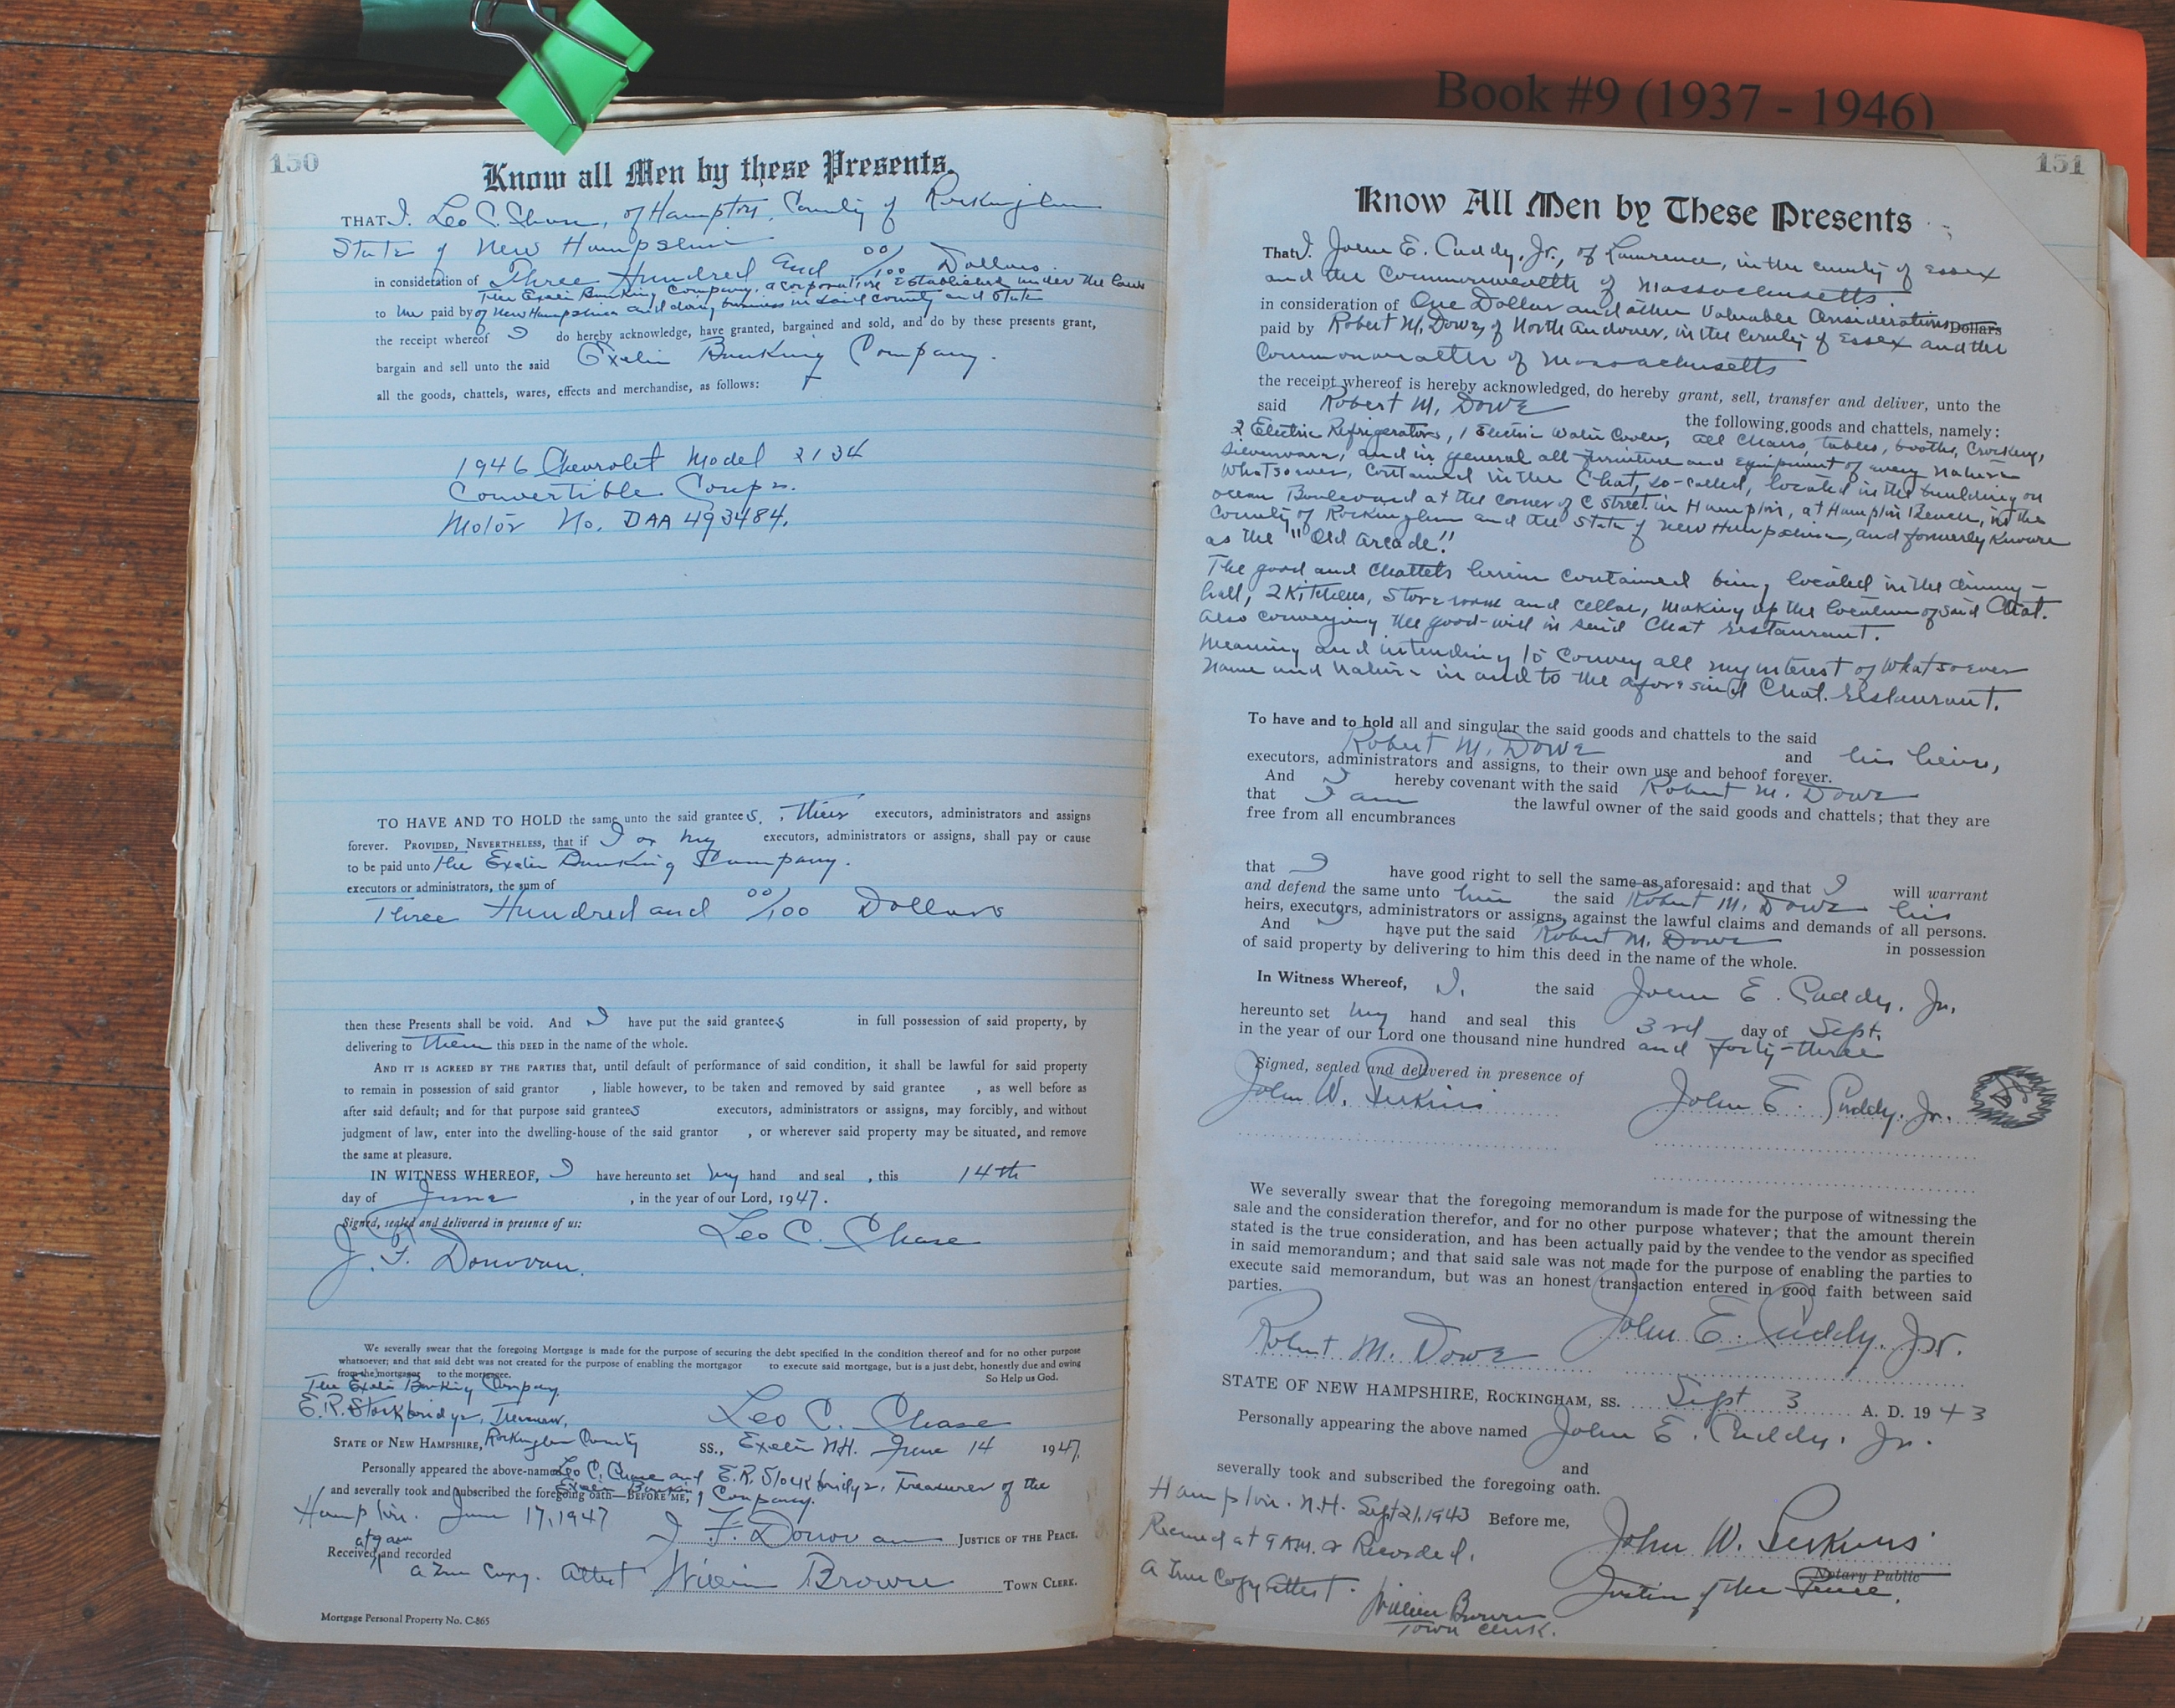 Book #9 (1937 - 1946)
150
Know all Men by these Presents
THAT I. Leo C. Chase, of Hampton, County of Rockingham
State of New Hampshire
in consideration of Three Hundred and 00/100 Dollars
The Exeter Banking Company, a corporation established under the laws
to me paid by of New Hampshire and doing business in said county and state
the receipt whereof I do hereby acknowledge, have granted, bargained and sold, and do by these presents grant,
bargain and sell unto the said Exeter Banking Company.
all the goods, chattels, wares, effects and merchandise, as follows:
1946 Chevrolet Model 2134
Convertible Coupe.
Motor No. DAA 493484.
TO HAVE AND TO HOLD the same unto the said grantees, their executors, administrators and assigns
forever. PROVIDED, NEVERTHELESS, that if I or my executors, administrators or assigns, shall pay or cause
to be paid unto the Exeter Banking Company.
executors or administrators, the sum of
Three Hundred and 00/100 Dollars
then these Presents shall be void. And I have put the said grantees in full possession of said property, by
delivering to them this DEED in the name of the whole.
AND IT IS AGREED BY THE PARTIES that, until default of performance of said condition, it shall be lawful for said property
to remain in possession of said grantor , liable however, to be taken and removed by said grantee , as well before as
after said default; and for that purpose said grantees executors, administrators or assigns, may forcibly, and without
judgment of law, enter into the dwelling-house of the said grantor , or wherever said property may be situated, and remove
the same at pleasure.
IN WITNESS WHEREOF, I have hereunto set my hand and seal , this 14th
day of June , in the year of our Lord, 1947.
Signed, sealed and delivered in presence of us:
Leo C. Chase
J. F. Donovan.
We severally swear that the foregoing Mortgage is made for the purpose of securing the debt specified in the condition thereof and for no other purpose
whatsoever; and that said debt was not created for the purpose of enabling the mortgagor to execute said mortgage, but is a just debt, honestly due and owing
from the mortgagor to the mortgagee. So Help us God.
The Exeter Banking Company,
E.R. Stockbridge, Treasurer. Leo C. Chase
STATE OF NEW HAMPSHIRE, Rockingham County SS., Exeter N.H. June 14 1947.
Personally appeared the above-named Leo C. Chase and E.R. Stockbridge, Treasurer of the
Exeter Banking Company.
and severally took and subscribed the foregoing oath—BEFORE ME,
Hampton. June 17, 1947
J. F. Donovan JUSTICE OF THE PEACE.
at 9 am
Received and recorded
A True Copy. Attest William Brown TOWN CLERK.
Mortgage Personal Property No. C-865
151
Know All Men by These Presents
That I. John E. Cuddy, Jr., of Lawrence, in the county of Essex
and the Commonwealth of Massachusetts.
in consideration of One Dollar and other Valuable Considerations Dollars
paid by Robert M. Dowe, of North Andover, in the County of Essex and the
Commonwealth of Massachusetts
the receipt whereof is hereby acknowledged, do hereby grant, sell, transfer and deliver, unto the
said Robert M. Dowe the following goods and chattels, namely:
2 Electric Refrigerators, 1 Electric Water Cooler, all chairs, tables, booths, Crockery,
silverware, and in general all furniture and equipment of every nature
whatsoever, contained in the Chat, so-called, located in the building on
ocean Boulevard at the corner of C Street in Hampton, at Hampton Beach, in the
County of Rockingham and the State of New Hampshire, and formerly known
as the "Old Arcade."
The good and chattels herein contained being located in the dining-
hall, 2 Kitchens, store room and cellar, making up the location of said Chat.
Also conveying the good-will in said Chat restaurant.
Meaning and intending to convey all my interest of whatsoever
name and nature in and to the aforesaid Chat restaurant.
To have and to hold all and singular the said goods and chattels to the said
Robert M. Dowe and his heirs,
executors, administrators and assigns, to their own use and behoof forever.
And I hereby covenant with the said Robert M. Dowe
that I am the lawful owner of the said goods and chattels; that they are
free from all encumbrances
that I have good right to sell the same as aforesaid: and that I will warrant
and defend the same unto him the said Robert M. Dowe his
heirs, executors, administrators or assigns, against the lawful claims and demands of all persons.
And I have put the said Robert M. Dowe in possession
of said property by delivering to him this deed in the name of the whole.
In Witness Whereof, I, the said John E. Cuddy, Jr.
hereunto set my hand and seal this 3rd day of Sept.
in the year of our Lord one thousand nine hundred and forty-three
Signed, sealed and delivered in presence of
John W. Perkins John E. Cuddy, Jr.
We severally swear that the foregoing memorandum is made for the purpose of witnessing the
sale and the consideration therefor, and for no other purpose whatever; that the amount therein
stated is the true consideration, and has been actually paid by the vendee to the vendor as specified
in said memorandum; and that said sale was not made for the purpose of enabling the parties to
execute said memorandum, but was an honest transaction entered in good faith between said
parties.
Robert M. Dowe John E. Cuddy, Jr.
STATE OF NEW HAMPSHIRE, ROCKINGHAM, SS. Sept 3 A. D. 1943
Personally appearing the above named John E. Cuddy, Jr.
and
severally took and subscribed the foregoing oath.
Hampton. N.H. Sept 21, 1943 Before me,
Received at 9 A.M. & Recorded. John W. Perkins
A True Copy Attest. Notary Public
Justice of the Peace.
William Brown
Town Clerk.